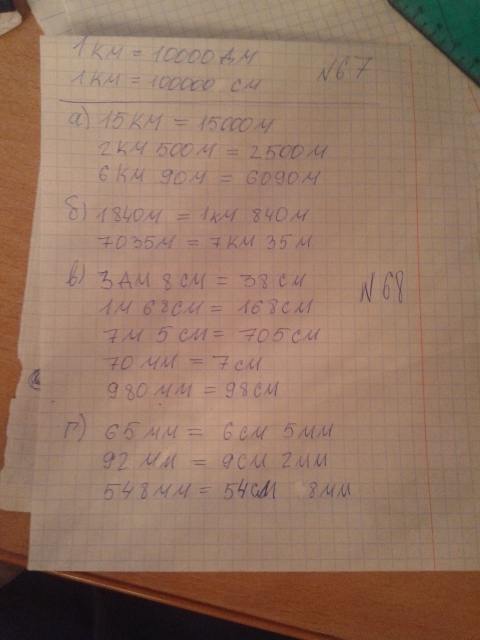 1 км = 10000 дм
N67
1 км = 100000 см
а) 15 км = 15000 м
2 км 500 м = 2500 м
6 км 90 м = 6090 м
б) 1840 м = 1 км 840 м
7035 м = 7 км 35 м
в) 3 дм 8 см = 38 см
N68
1 м 68 см = 168 см
7 м 5 см = 705 см
70 мм = 7 см
980 мм = 98 см
г) 65 мм = 6 см 5 мм
92 мм = 9 см 2 мм
548 мм = 54 см 8 мм